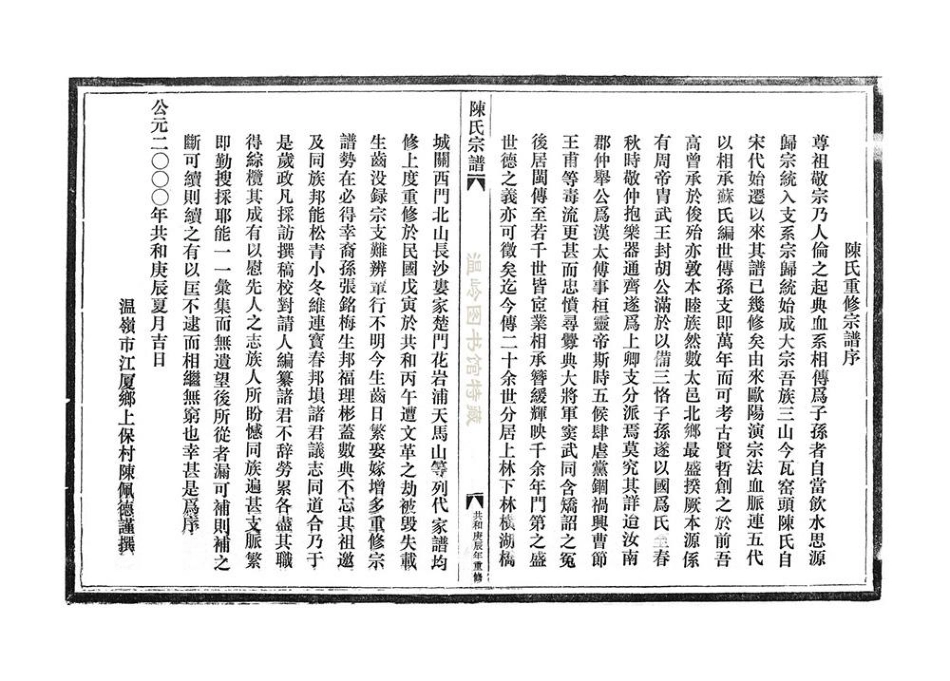 陳氏重修宗譜序
尊祖敬宗乃人倫之起典血系相傳爲子孫者自當飲水思源
歸宗統入支系宗歸統始成大宗吾族三山今瓦窑頭陳氏自
宋代始遷以來其譜已幾修矣由來歐陽演宗法血脈連五代
以相承蘇氏編世傳孫支即萬年而可考古賢哲創之於前吾
高曾承於後殆亦敦本睦族然數太邑北鄉最盛揆厥本源係
有周帝胄武王封胡公滿於以備三恪子孫遂以國爲氏至春
秋時敬仲抱樂器通齊遂爲上卿支分派焉莫究其詳迨汝南
郡仲舉公爲漢太傅事桓靈帝斯時五侯肆虐黨錮禍興曹節
王甫等毒流更甚而忠憤尋釁典大將軍竇武同含矯詔之冤
後居閩傳至若千世皆宦業相承簪緩輝映千余年門第之盛
世德之義亦可徵矣迄今傳二十余世分居上林下林橫湖橋
陳氏宗譜
温岭图书馆特藏
共和庚辰年重修
城關西門北山長沙婁家楚門花岩浦天馬山等列代家譜均
修上度重修於民國戊寅於共和丙午遭文革之劫被毁失載
生齒没録宗支難辨輩行不明今生齒日繁娶嫁增多重修宗
譜勢在必得幸裔孫張銘梅生邦福理彬蓋數典不忘其祖邀
及同族邦能松青小冬維連寶春邦塤諸君議志同道合乃于
是歲政凡採訪撰稿校對請人編纂諸君不辞勞累各盡其職
得綜欖其成有以慰先人之志族人所盼憾同族遍甚支脈繁
即勤搜採耶能一一彙集而無遺望後所從者漏可補則補之
斷可續則續之有以匡不逮而相繼無窮也幸甚是爲序
温嶺市江厦鄉上保村陳佩德謹撰
公元二〇〇〇年共和庚辰夏月吉日